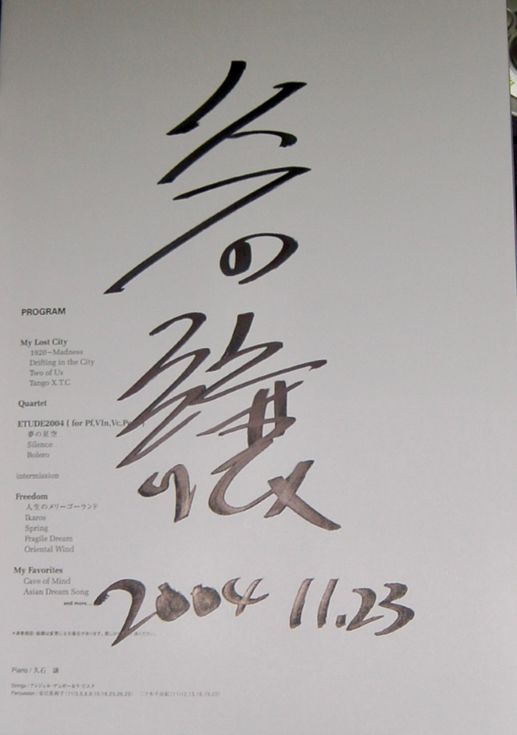 久石
譲
PROGRAM
My Lost City
1920~Madness
Drifting in the City
Two of Us
Tango X.T.C
Quartet
ETUDE2004 ( for Pf,Vln,Vc,
夢の星空
Silence
Bolero
intermission
Freedom
人生のメリーゴーランド
Ikaros
Spring
Fragile Dream
Oriental Wind
My Favorites
Cave of Mind
Asian Dream Song
and more...
2004 11.23
Piano / 久石 譲
Strings / アンジェル・デュボー&ラ・ピエタ
Percussion /